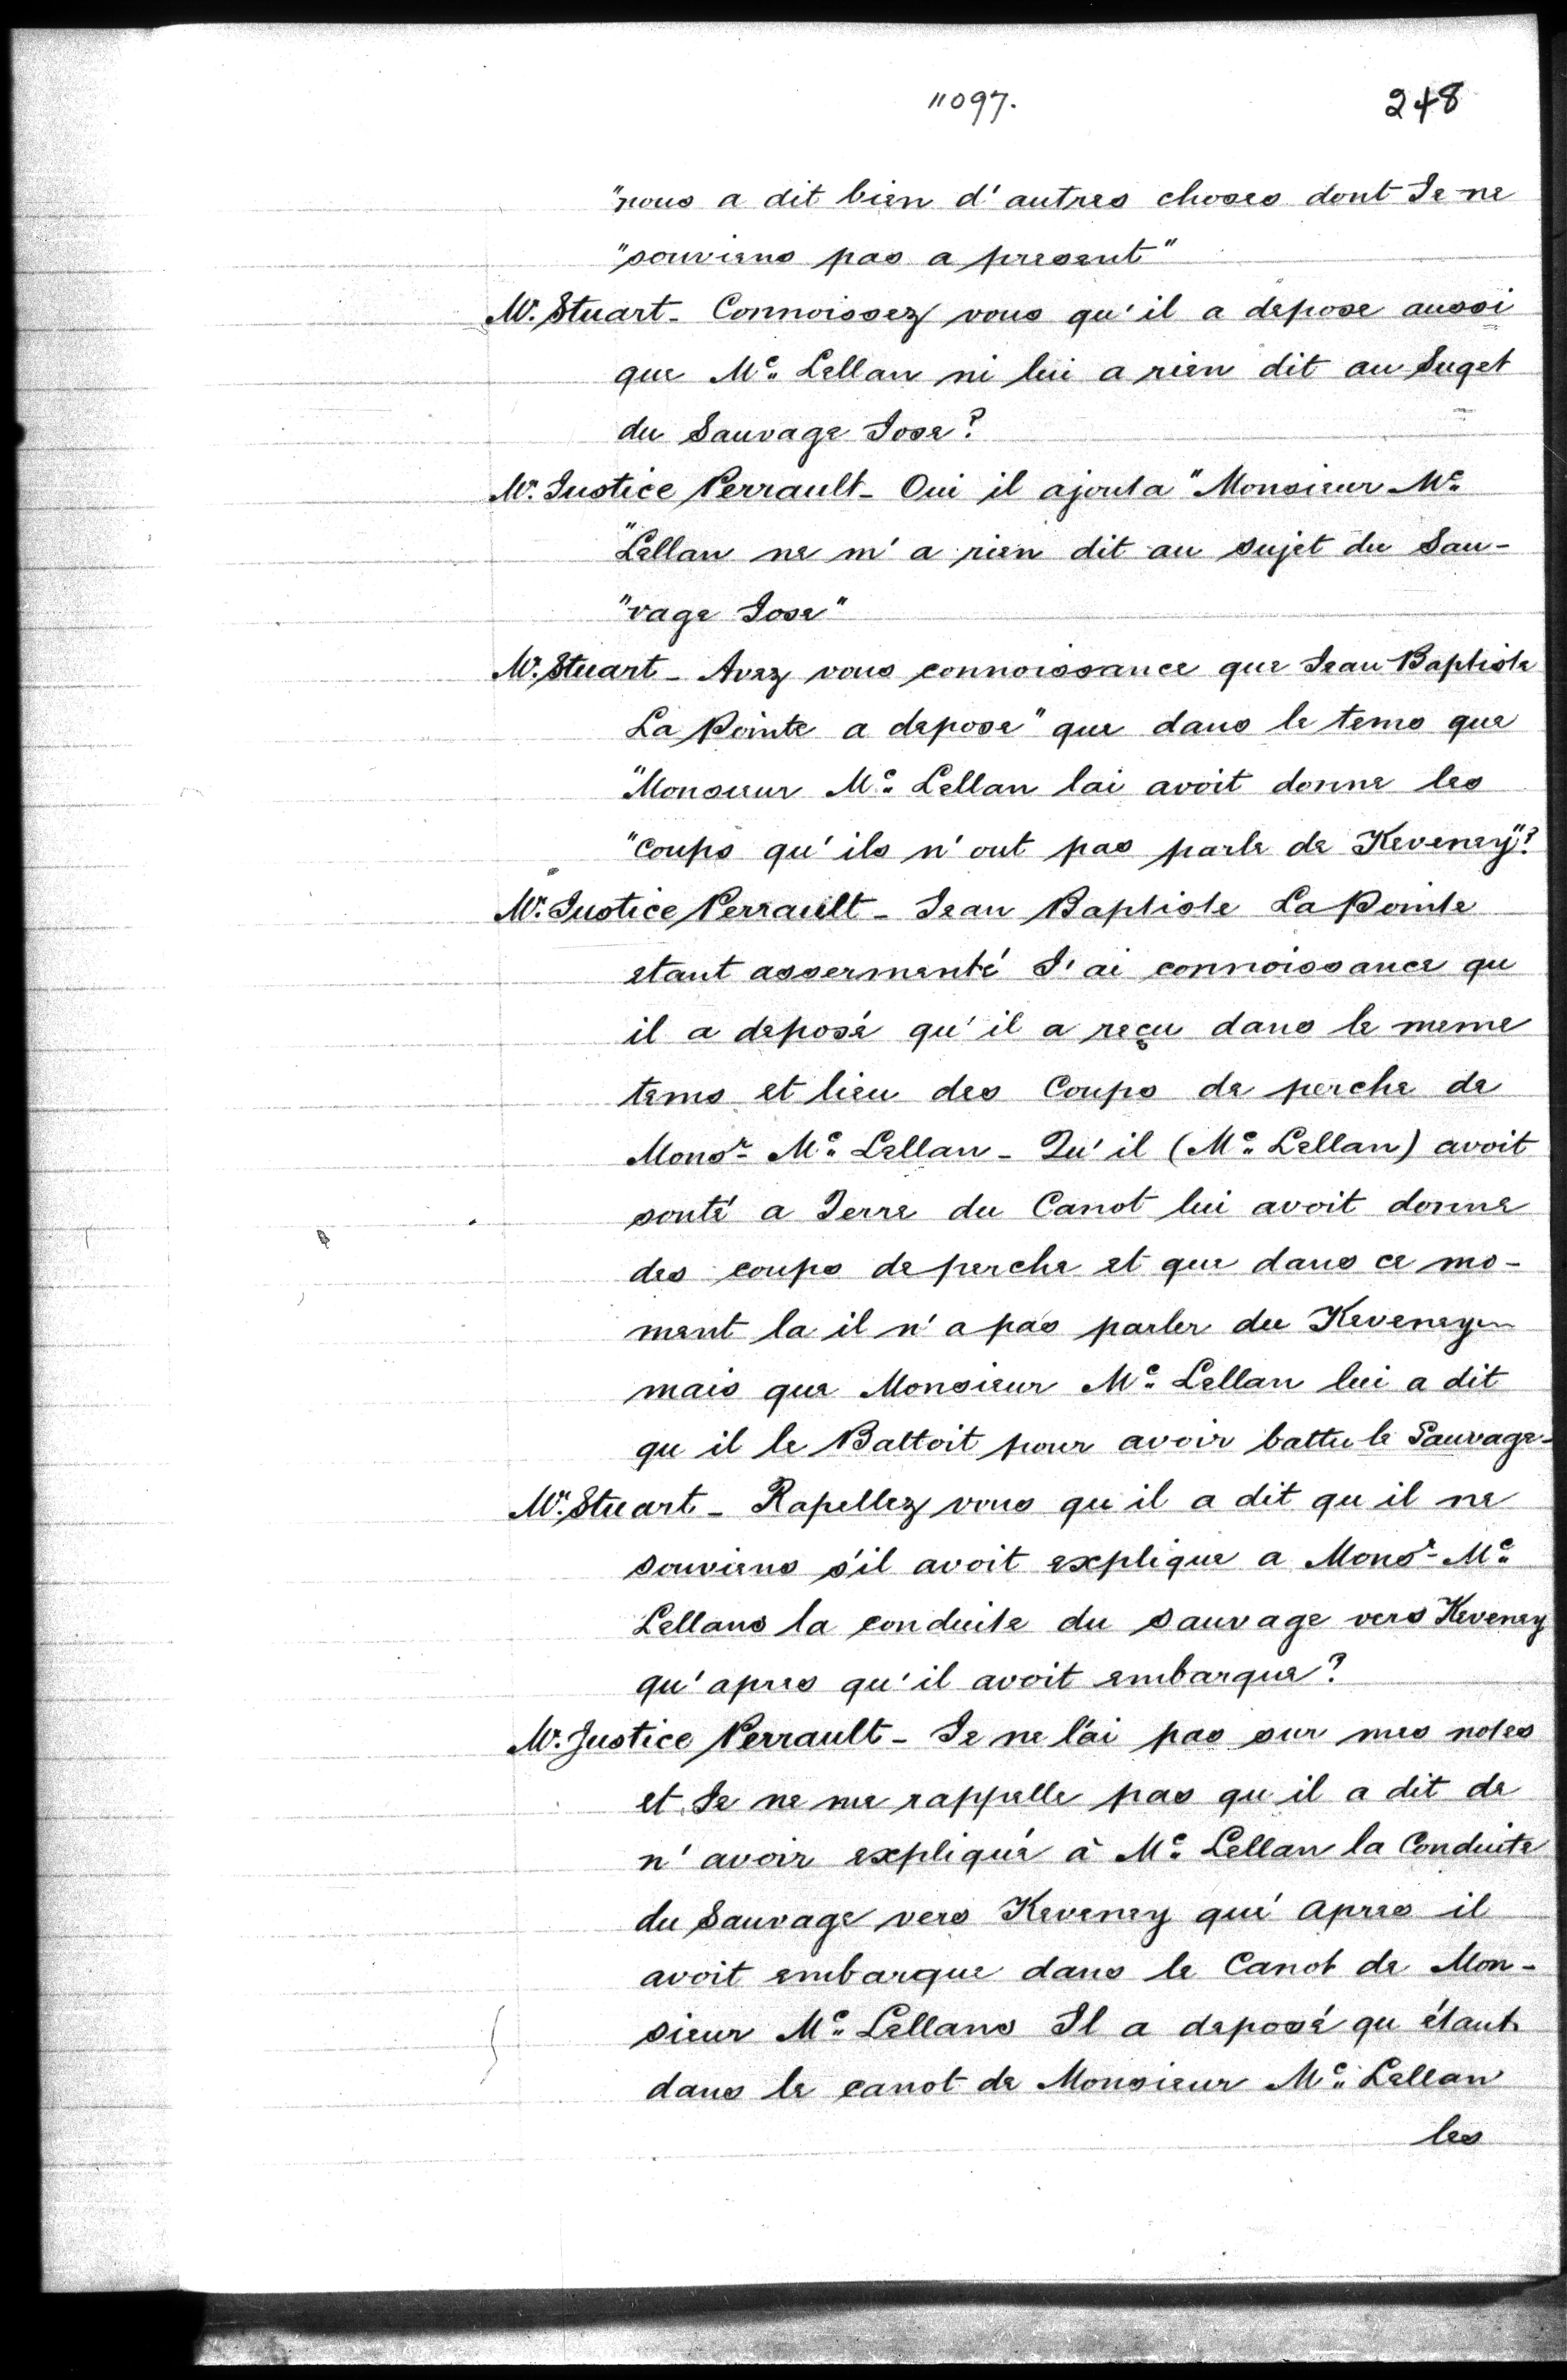 11097.
248
"nous a dit bien d'autres choses dont Je ne
"souviens pas a present"
Mr. Stuart - Connoissez vous qu'il a depose aussi
que Mc Lellan ni lui a rien dit au Suget
du Sauvage Jose?
Mr. Justice Perrault - Oui il ajouta "Monsieur Mc
"Lellan ne m'a rien dit au sujet du Sau-
"vage Jose"
Mr. Stuart - Avez vous connoissance que Jean Baptiste
La Pointe a depose "que dans le tems que
"Monsieur Mc Lellan lai avoit donne les
"Coups qu'ils n'ont pas parle de Keveney"?
Mr. Justice Perrault - Jean Baptiste La Pointe
etant assermenté J'ai connoissance qu
il a deposé qu'il a reçu dans le meme
tems et lieu des Coups de perche de
Monsr Mc Lellan - Qu'il (Mc Lellan) avoit
souté a Terre du Canot lui avoit donne
des coups de perche et que dans ce mo-
ment la il n'a pas parler du Keveney
mais que Monsieur Mc Lellan lui a dit
qu il le Battoit pour avoir battu le Sauvage -
Mr. Stuart - Rapellez vous qu il a dit qu il ne
souviens s'il avoit explique a Monsr Mc
Lellans la conduite du sauvage vers Keveney
qu'apres qu'il avoit embarque?
Mr. Justice Perrault - Je ne l'ai pas sur mes notes
et Je ne me rappelle pas qu il a dit de
n'avoir expliqué à Mc Lellan la Conduite
du Sauvage vers Keveney qu' apres il
avoit embarque dans le Canot de Mon-
sieur Mc Lellans Il a deposé qu étant
dans le canot de Monsieur Mc Lellan
les